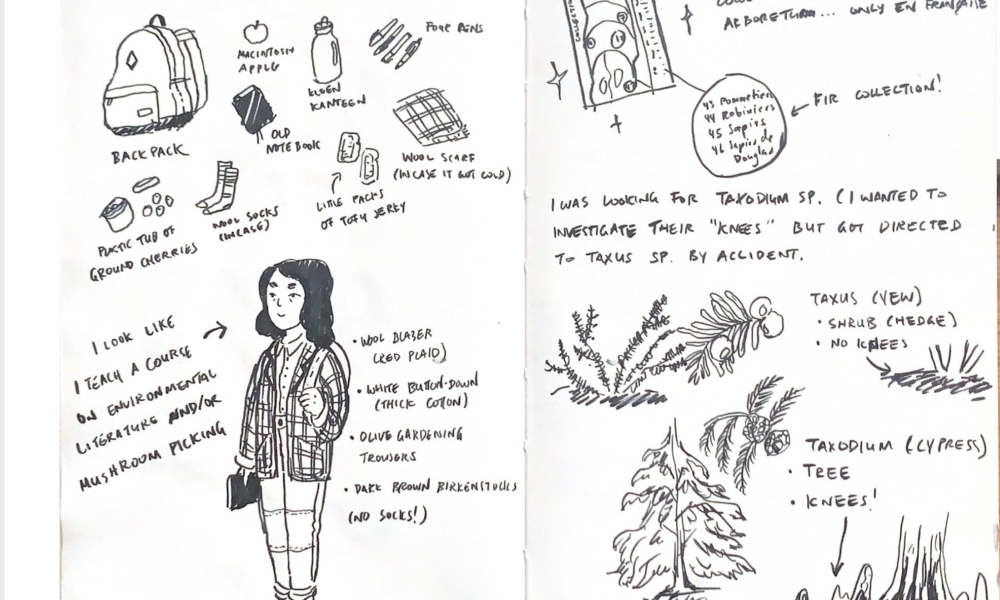 MACINTOSH
APPLE
KLEEN
KANTEEN
FOUR PENS
BACKPACK
OLD
NOTEBOOK
WOOL SCARF
(IN CASE IT GOT COLD)
PLASTIC TUB OF
GROUND CHERRIES
WOOL SOCKS
(IN CASE)
LITTLE PACKS
OF TOFU JERKY
I LOOK LIKE
I TEACH A COURSE
ON ENVIRONMENTAL
LITERATURE AND/OR
MUSHROOM PICKING
• WOOL BLAZER
(RED PLAID)
• WHITE BUTTON-DOWN
(THICK COTTON)
• OLIVE GARDENING
TROUSERS
• DARK BROWN BIRKENSTOCKS
(NO SOCKS!)
ARBORETUM... ONLY EN FRANÇAISE
43 Pommetiers
44 Robiniers
45 Sapins
46 Sapins de
Douglas
FIR COLLECTION!
I WAS LOOKING FOR TAXODIUM SP. (I WANTED TO
INVESTIGATE THEIR "KNEES" BUT GOT DIRECTED
TO TAXUS SP. BY ACCIDENT.
TAXUS (YEW)
• SHRUB (HEDGE)
• NO KNEES
TAXODIUM (CYPRESS)
• TREE
• KNEES!